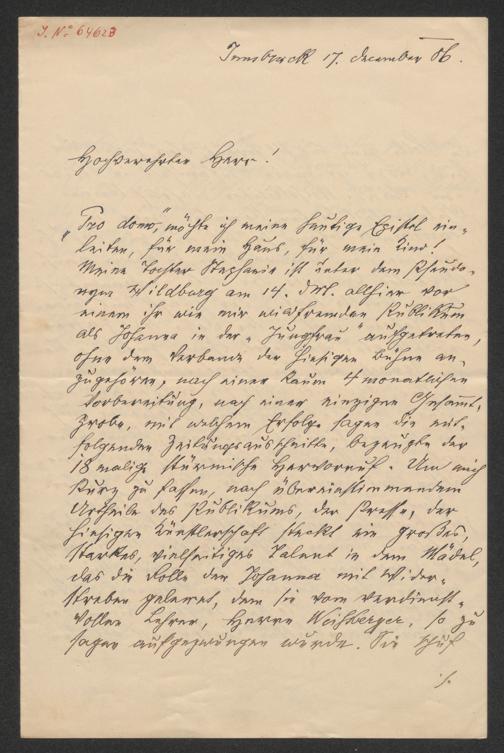 J. No 64623
Innsbruck 17. december 86.
Hochverehrter Herr!
„Pro domo," möchte ich meine heutige Epistel ein-
leiten, für mein Haus, für mein Kind!
Meine Tochter Stephanie ist unter dem Pseudo-
nym Wildburg am 14. d M. allhier vor
einem ihr wie mir wildfremden Publikum
als Johanna in der „Jungfrau" aufgetreten,
ohne dem Verbande der hiesigen Bühne an-
zugehören, nach einer kaum 4 monatlichen
Vorbereitung, nach einer einzigen Gesammt-
probe, mit welchem Erfolge sagen die mit-
folgenden Zeitungsausschnitte, bezeugte der
18 malige stürmische Hervorruf. Um mich
kurz zu fassen, nach übereinstimmendem
Urtheile des Publikums, der Presse, der
hiesigen Künstlerschaft steckt ein großes,
starkes, vielseitiges Talent in dem Mädel,
das die Rolle der Johanna mit Wider-
streben gelernt, dem sie vom verdienst-
vollen Lehrer, Herrn so zu
sagen aufgezwungen wurde. Sie schuf
./.